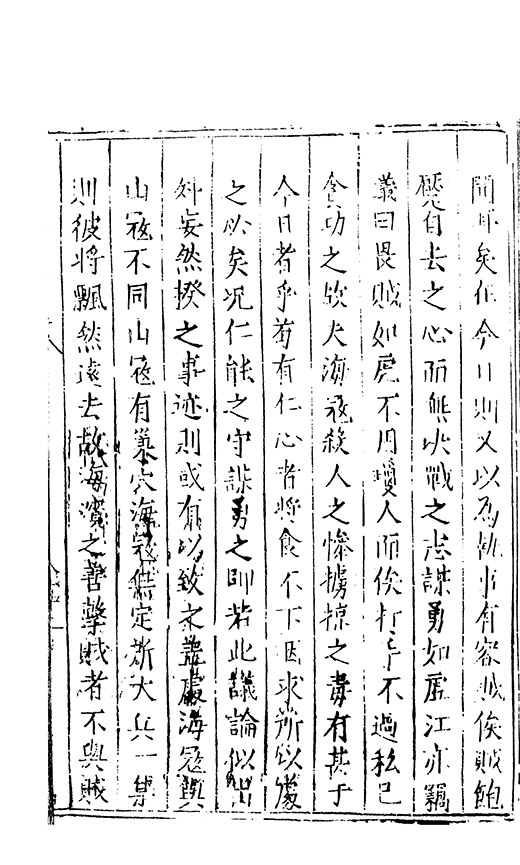 聞耳矣但今日則又以為執事有容賊俟賊飽
壓自去之心而無决戰之志謀勇如盧江亦竊
議曰畏賊如虎不用瓊人而俟打手不過私己
貪功之欲夫海寇殺人之慘擄掠之毒有甚于
今日者乎苟有仁心者將食不下咽求所以處
之必矣况仁能之守謀勇之即若此議論似出
妄然揆之事迹則或有以致之盖處海寇與
山寇不同山寇有巢穴海寇無定所大兵一集
則彼將飄然遠去故海濱之善擊賊者不與賊